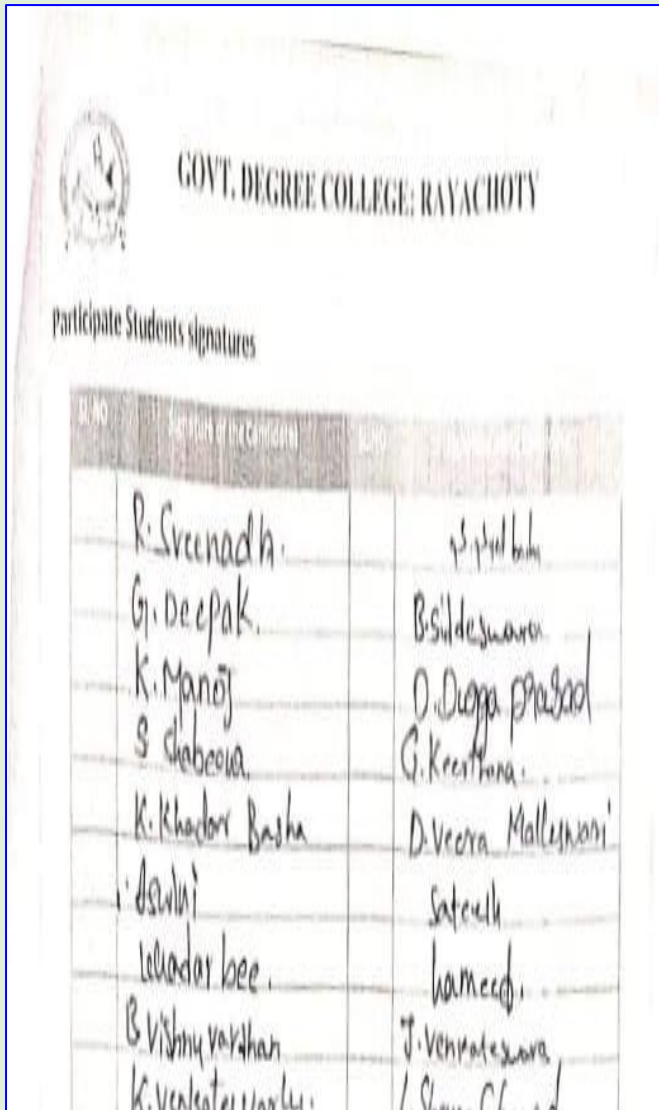 GOVT. DEGREE COLLEGE: RAYACHOTY
Participate Students signatures
SL.NO
R. Sreenadh.
G. Deepak. B. Sildeswara
K. Manoj D. Dugga prasad
S Shabeena G. Keerthana.
K. Khadar Basha D. Veera Malleswari
Aswini Sateesh
khadar bee. hameed.
B Vishnu vardhan J. Venkateswara
K. Venkateswarlu.